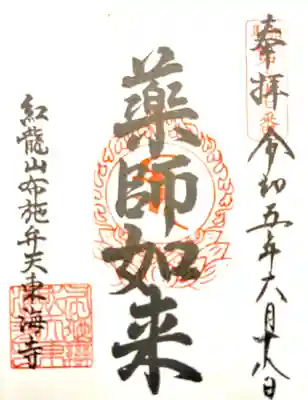 奉拝 令和五年六月十八日
薬師如来
紅龍山布施弁天東海寺